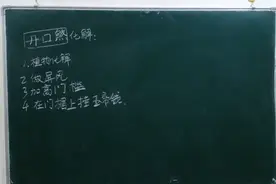 开口煞化解:
1.植物化解
2 做屏风
3 加高门槛
4 在门框上挂五帝钱.